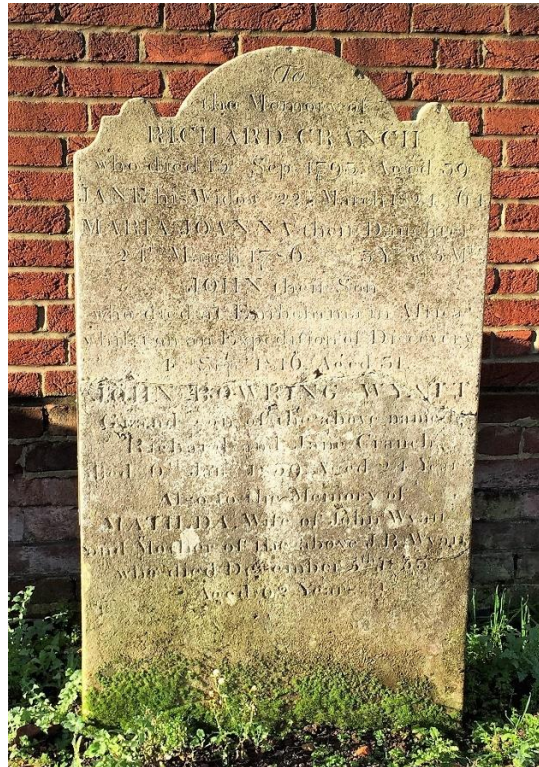 To
the Memory of
RICHARD CRANCH
who died 12 Sep. 1795, Aged 39
JANE his Widow 22d March 64
MARIA JOANNA their Daughter
24th March 1786 5 Years
JOHN their Son
who died at in Africa
whilst on an Expedition of Discovery
4 Sepr 1816, Aged 31
JOHN BOWRING WYATT
Grand son of the above named
Richard and Jane Cranch,
died Jan Aged 24 Years
Also to the Memory of
MATILDA, Wife of John Wyatt
and Mother of the above J.B. Wyatt
who died December
Aged Years